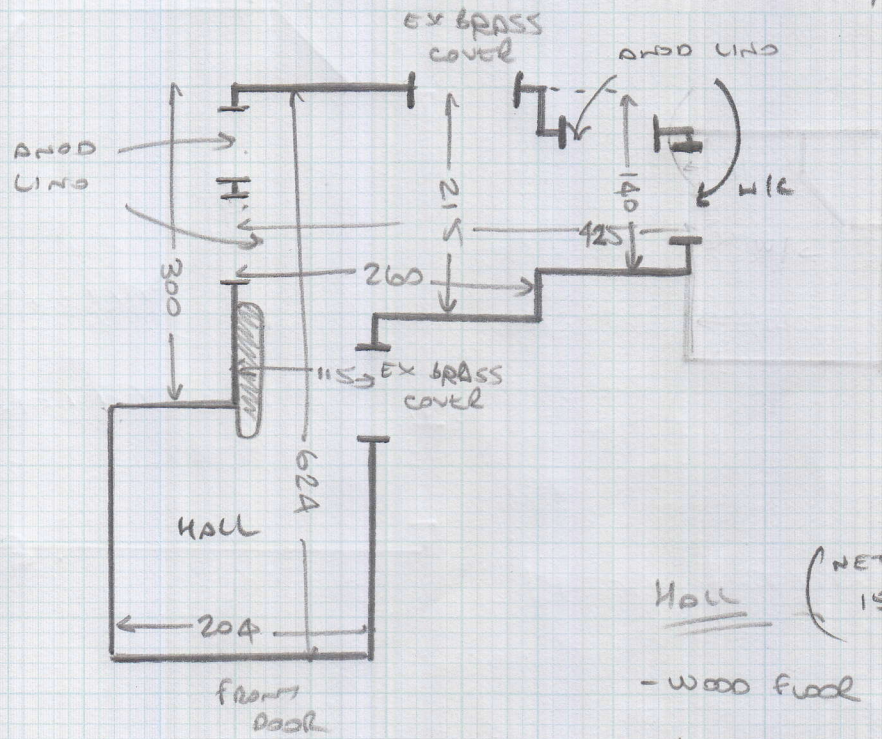 EX BRASS
COVER
ANOD LINO
ANOD
LINO
W/C
300
215
140
425
260
115
EX BRASS
COVER
624
HALL
204
FRONT
DOOR
HALL
NET
15
- WOOD FLOOR